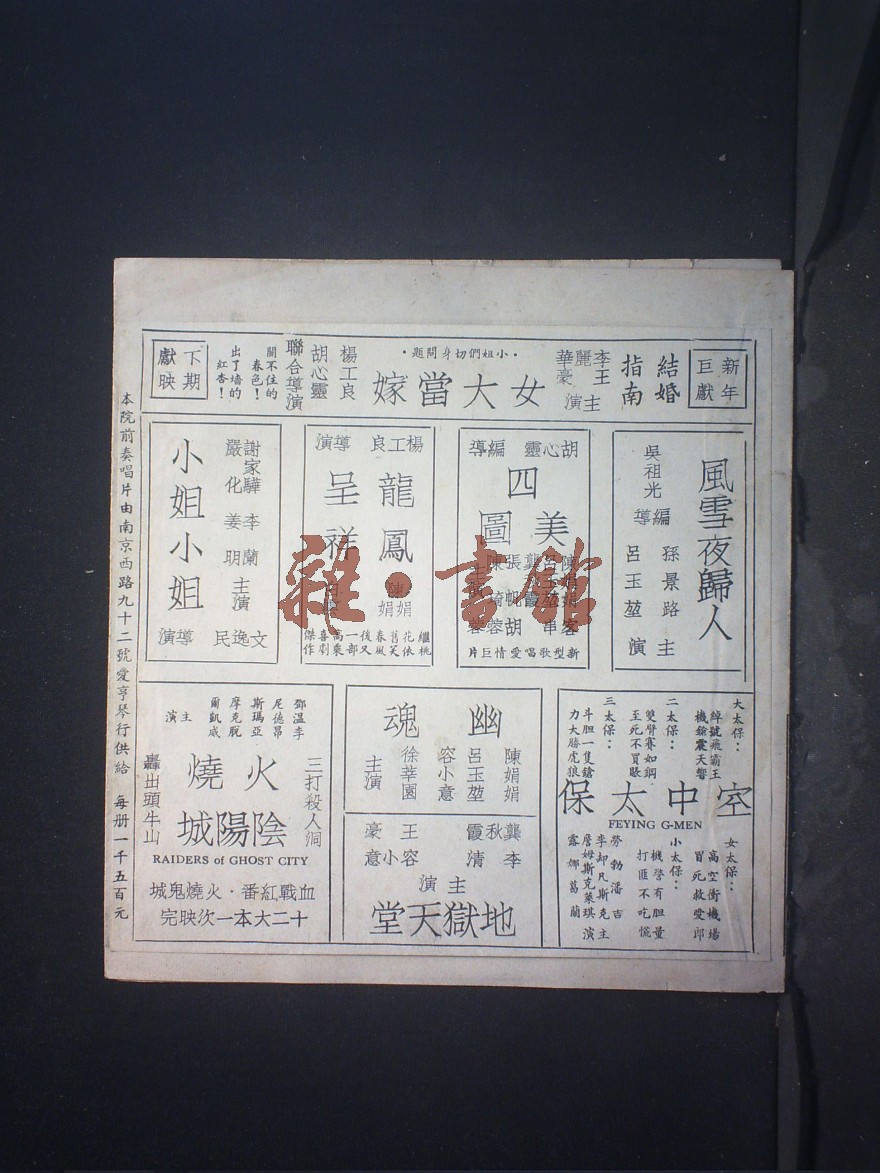 新年
巨獻
結婚
指南
李麗華
王豪
主演
·小姐們切身問題·
女大當嫁
楊工良
胡心靈
聯合導演
關不住的
春色!
出了墻的
紅杏!
下期
獻映
風雪夜歸人
吳祖光
編導
孫景路
呂玉堃
主演
胡心靈 編導
四美圖
陳娟娟
呂玉堃
客串
龔秋霞
張帆
胡蓉蓉
陳綺
新型歌唱愛情巨片
楊工良 導演
龍鳳
呈祥
陳娟娟
繼桃
花依
舊笑
春風
後又
一部
高乘
喜劇
傑作
小姐小姐
謝家驊
李蘭
嚴化
姜明
主演
文逸民 導演
大太保:
綽號飛霸王
機鎗震天響
二太保:
雙臂賽如鋼
至死不買賬
三太保:
斗胆一隻鎗
力大勝虎狼
空中太保
FEYING G-MEN
女太保:
高空衝機場
冒死救愛郎
小太保:
機警有胆量
打匪不吃慌
勞勃潘吉
李却凡斯克
詹姆斯克萊琪
露娜葛蘭
主演
幽魂
陳娟娟
呂玉堃
容小意
徐莘園
主演
龔秋霞
李清
王豪
容小意
主演
地獄天堂
鄧温李
尼德昂
斯瑪亞
摩克脫
爾凱威
主演
三打殺人洞
火燒
陰陽城
轟出頭牛山
RAIDERS of GHOST CITY
血戰紅番·火燒鬼城
十二大本一次映完
本院前奏唱片由南京西路九十二號愛亨琴行供給 每册一千五百元
雜·書館